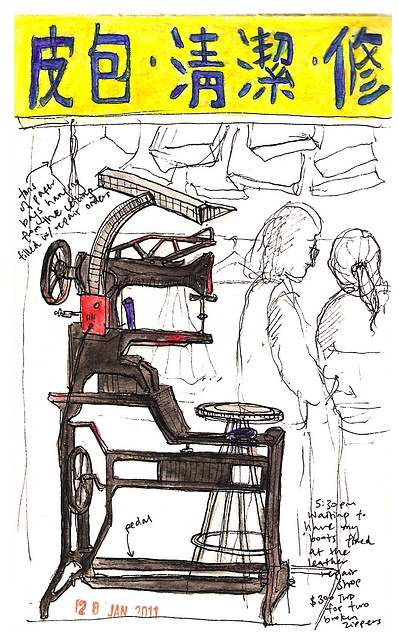 皮包·清潔·修
tons
of paper
bags hanging
from the ceiling
filled w/ repair orders
pedal
5:30 pm
waiting to
have my
boots fixed
at the
leather
repair
shop
$300 TWD
for two
broken
zippers
28 JAN 2011